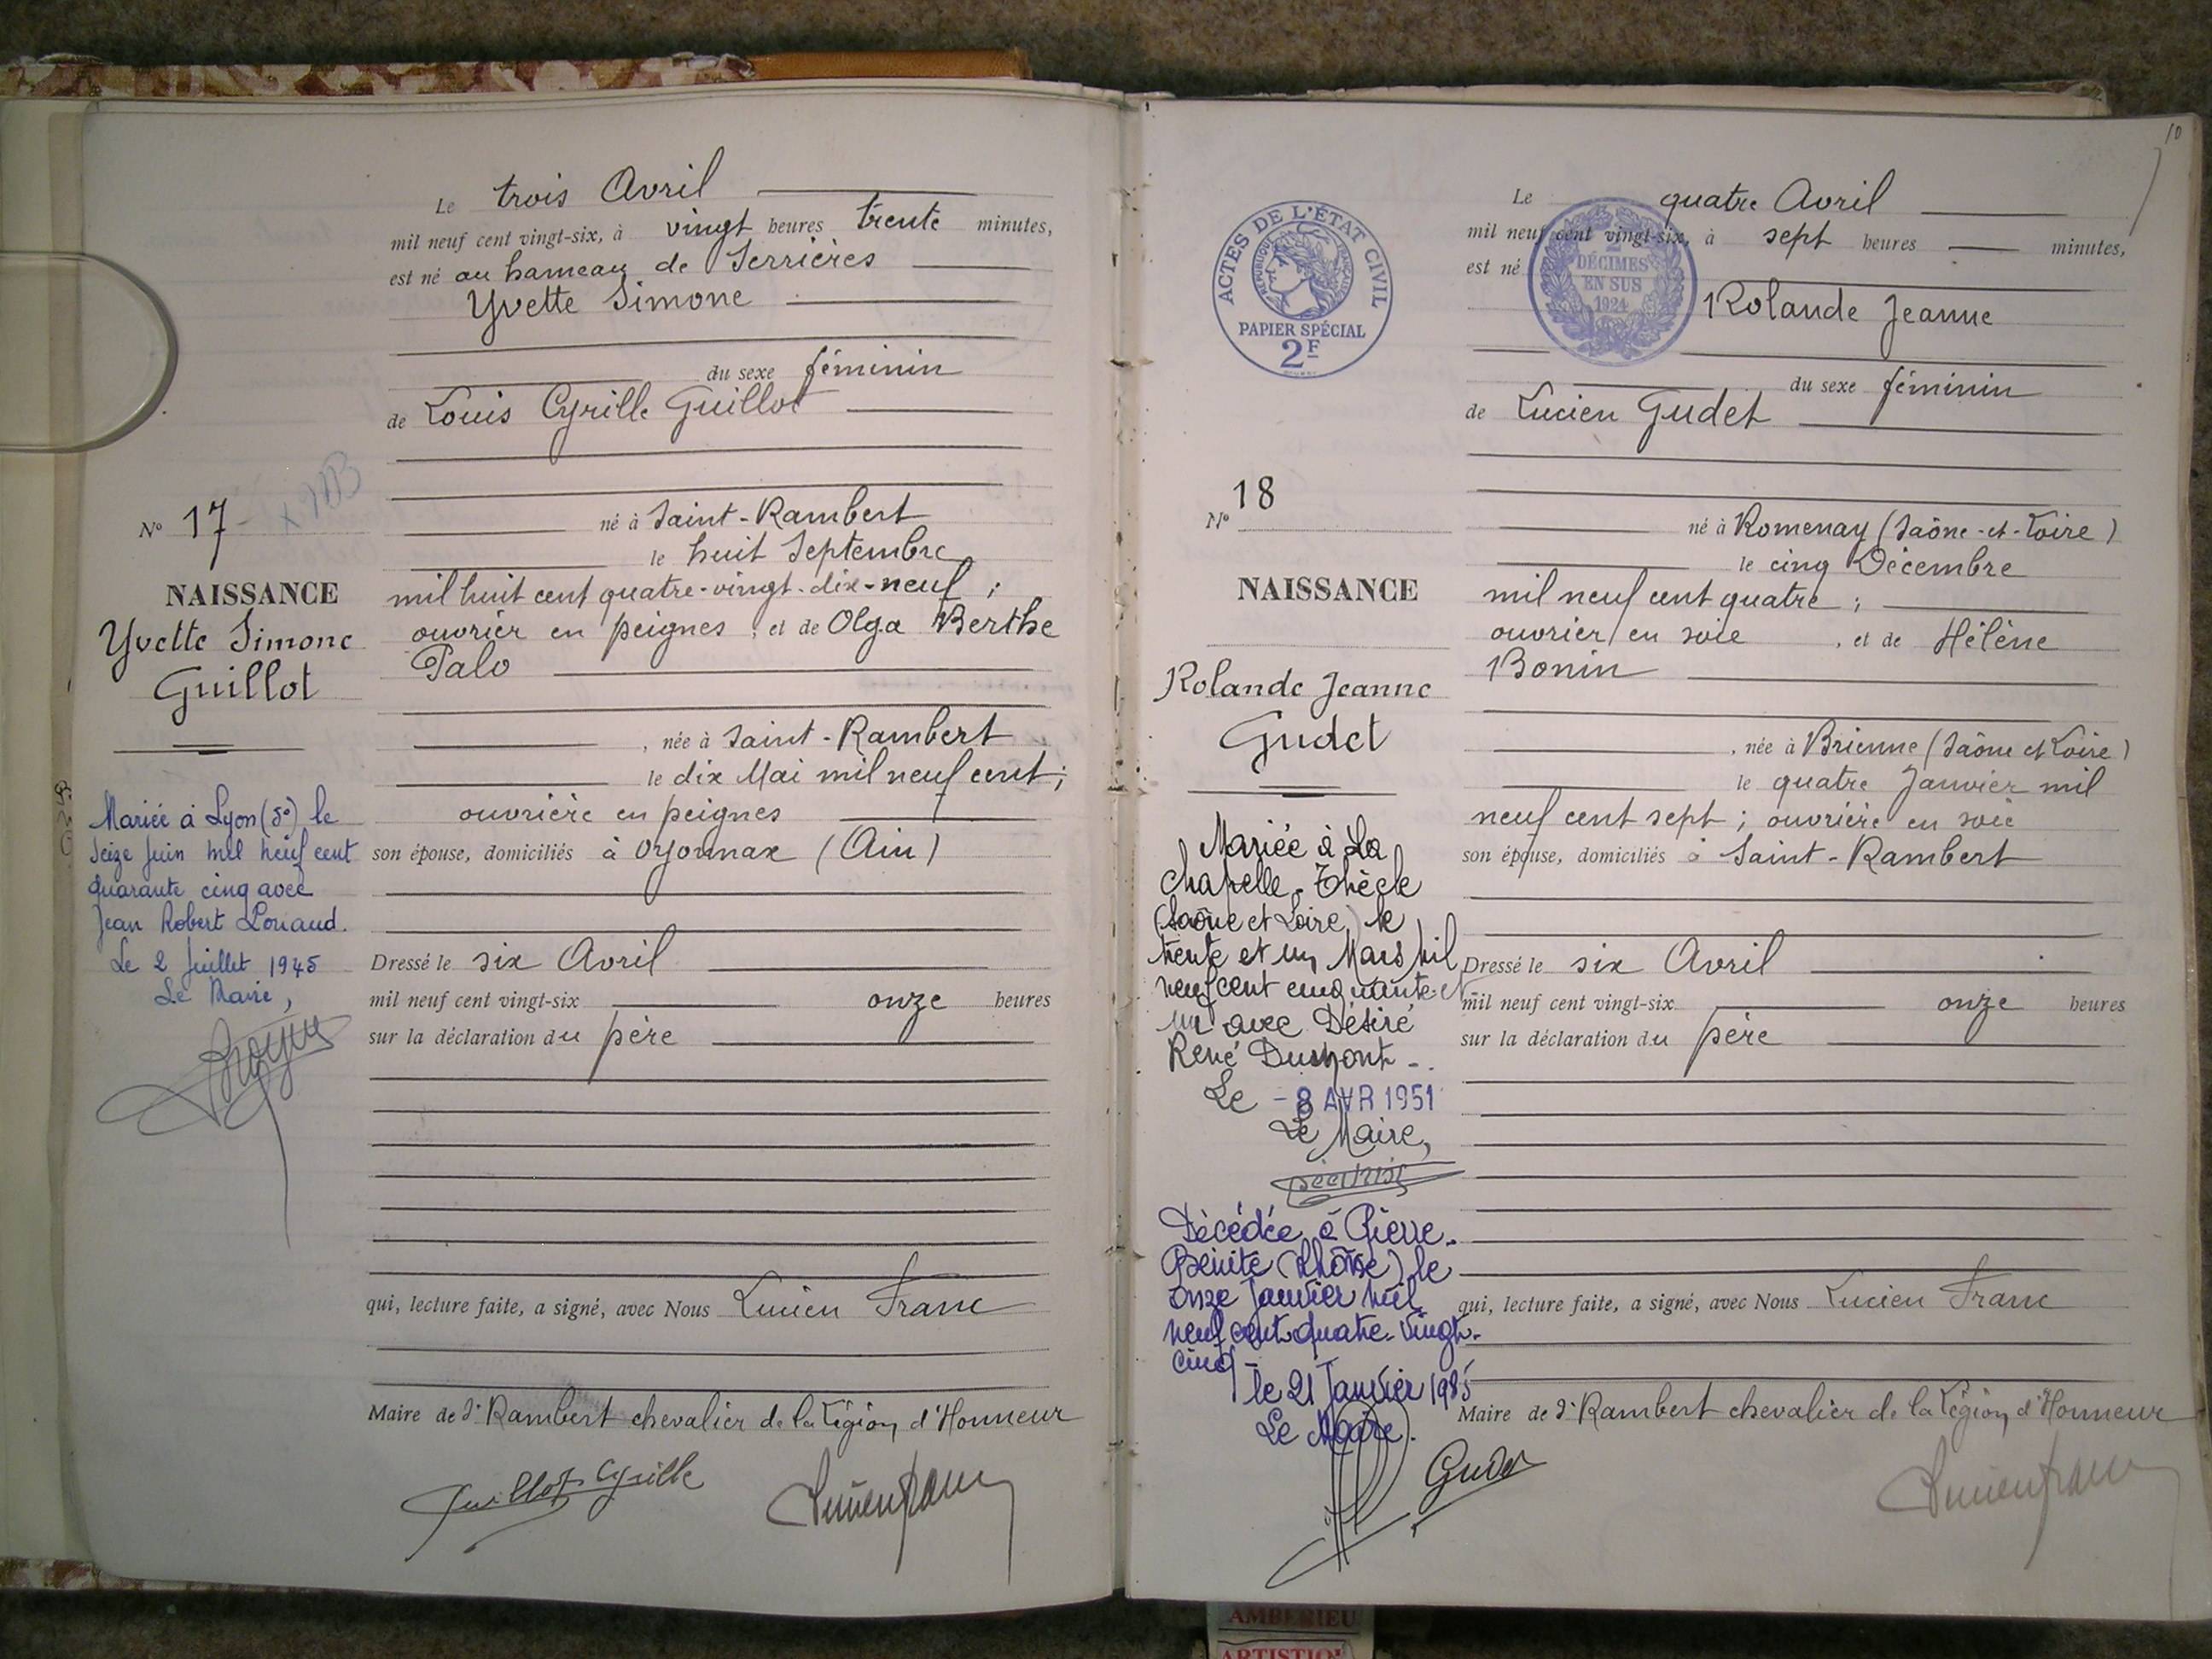 Le trois Avril
mil neuf cent vingt-six, à vingt heures trente minutes,
est né au hameau de Serrières
Yvette Simone
du sexe féminin
de Louis Cyrille Guillot
né à Saint-Rambert
le huit Septembre
mil huit cent quatre-vingt-dix-neuf ;
ouvrier en peignes ; et de Olga Berthe
Palo
, née à Saint-Rambert
le dix Mai mil neuf cent ;
ouvrière en peignes
son épouse, domiciliés à Oyonnax (Ain)
Dressé le six Avril
mil neuf cent vingt-six onze heures
sur la déclaration du père
qui, lecture faite, a signé, avec Nous Lucien Franc
Maire de St Rambert chevalier de la Légion d'Honneur
Guillot Cyrille
Lucien Franc
N° 17
NAISSANCE
Yvette Simone
Guillot
Mariée à Lyon (5e) le
seize Juin mil neuf cent
quarante cinq avec
Jean Robert
Le 2 Juillet 1945
Le Maire,
10
ACTES DE L'ÉTAT CIVIL
RÉPUBLIQUE FRANÇAISE
PAPIER SPÉCIAL
2F
2
DÉCIMES
EN SUS
1924
Le quatre Avril
mil neuf cent vingt-six, à sept heures minutes,
est né
Rolande Jeanne
du sexe féminin
de Lucien Gudet
né à Romenay (Saône-et-Loire)
le cinq Décembre
mil neuf cent quatre ;
ouvrier en soie , et de Hélène
Bonin
, née à Brienne (Saône et Loire)
le quatre Janvier mil
neuf cent sept ; ouvrière en soie
son épouse, domiciliés à Saint-Rambert
Dressé le six Avril
mil neuf cent vingt-six onze heures
sur la déclaration du père
qui, lecture faite, a signé, avec Nous Lucien Franc
Maire de St Rambert chevalier de la Légion d'Honneur
Gudet
Lucien Franc
N° 18
NAISSANCE
Rolande Jeanne
Gudet
Mariée à La
Chapelle-Thècle
(Saône et Loire) le
trente et un Mars mil
neuf cent cinquante et
un avec Désiré
René Dumont -
Le - 8 AVR 1951
Le Maire,
Décédée à Pierre-
Bénite (Rhône) le
onze Janvier mil
neuf cent quatre-vingt-
cinq -
le 21 Janvier 1985
Le Maire.
AMBERIEU